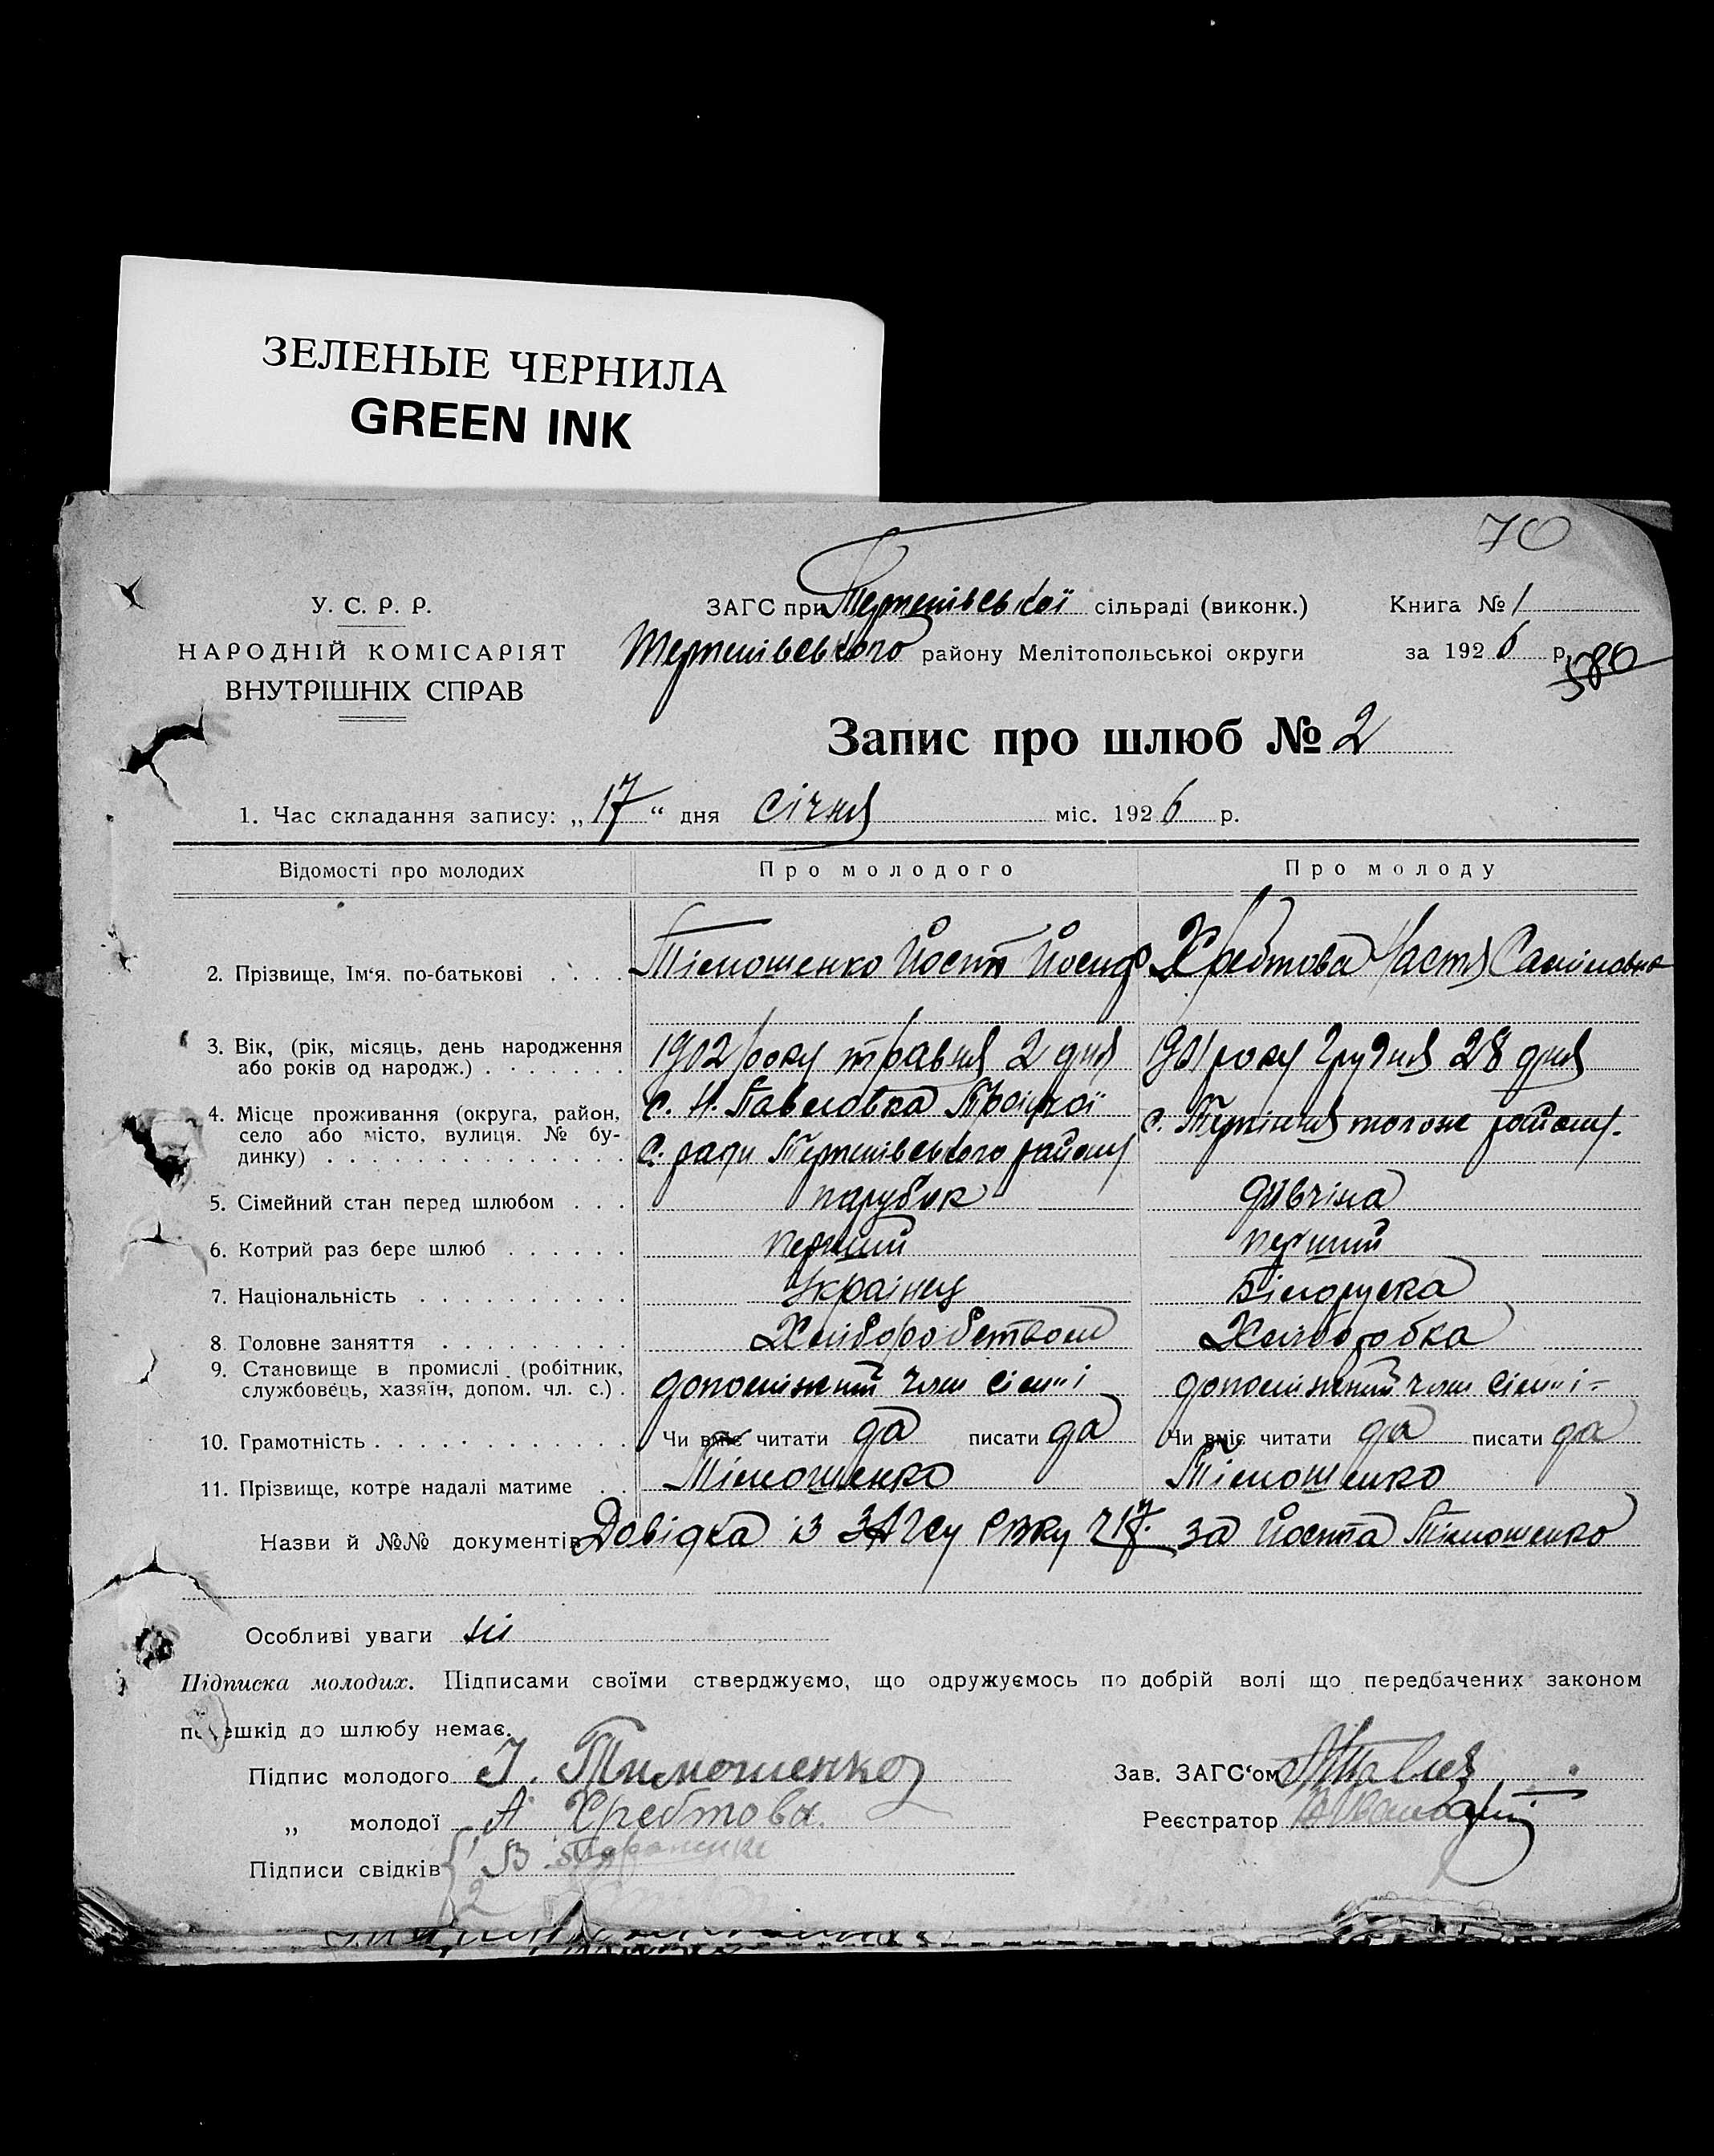 ЗЕЛЕНЫЕ ЧЕРНИЛА
GREEN INK
70
У. С. Р. Р.
НАРОДНІЙ КОМІСАРІЯТ
ВНУТРІШНІХ СПРАВ
ЗАГС при Терпенівської сільраді (виконк.)
Терпенівського району Мелітопольської округи
Книга № 1
за 1926 р.
580
Запис про шлюб № 2
1. Час складання запису: „17“ дня січня міс. 1926 р.
Відомості про молодих Про молодого Про молоду
2. Прізвище, Ім‘я, по-батькові . . . . Тімошенко Йосип Йосипо Хребтова Настя Самойловна
3. Вік, (рік, місяць, день народження або років од народж.) . . . . . . . 1902 року травня 2 дня 1901 року Грудня 28 дня
4. Місце проживання (округа, район, село або місто, вулиця. № будинку) . . . . . . . . . . . . . . . с. Н. Павловка Троїцкої с. ради Терпенівського району с. Терпіння тогож району.
5. Сімейний стан перед шлюбом . . . парубок дівчіна
6. Котрий раз бере шлюб . . . . . . перший перший
7. Національність . . . . . . . . . . Українец Білоруска
8. Головне заняття . . . . . . . . . Хліборобством Хліборобка
9. Становище в промислі (робітник, службовець, хазяїн, допом. чл. с.) . допоміжний член сімї допоміжний член сімї
10. Грамотність . . . . . . . . . . . . Чи вміє читати да писати да Чи вміє читати да писати да
11. Прізвище, котре надалі матиме . . Тімошенко Тімошенко
Назви й №№ документів Довідка із ЗАГСу РВКу за Йосипа Тімошенко
Особливі уваги
Підписка молодих. Підписами своїми стверджуємо, що одружуємось по добрій волі що передбачених законом
перешкід до шлюбу немає.
Підпис молодого І. Тимошенко
„ молодої А. Хребтова.
Підписи свідків 1 В.
2
Зав. ЗАГС‘ом
Реєстратор